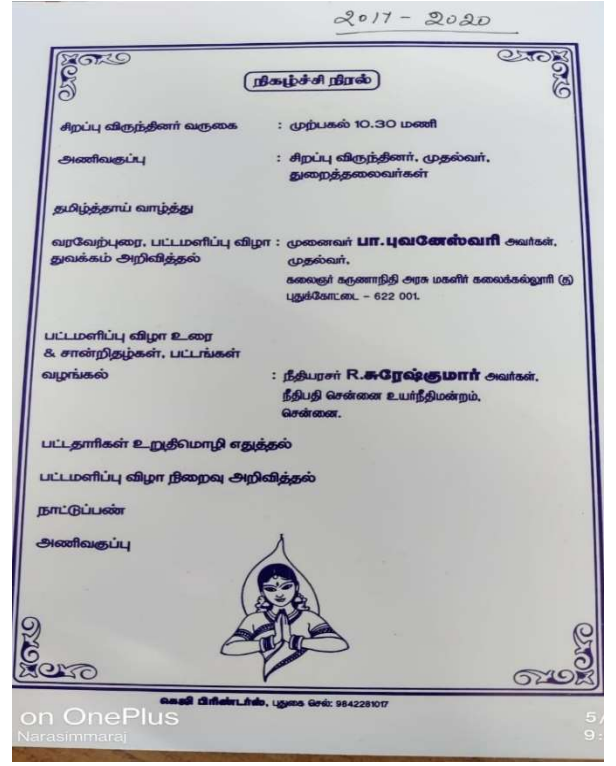 2017 - 2020
நிகழ்ச்சி நிரல்
சிறப்பு விருந்தினர் வருகை : முற்பகல் 10.30 மணி
அணிவகுப்பு : சிறப்பு விருந்தினர், முதல்வர்,
துறைத்தலைவர்கள்
தமிழ்த்தாய் வாழ்த்து
வரவேற்புரை, பட்டமளிப்பு விழா : முனைவர் பா.புவனேஸ்வரி அவர்கள்,
துவக்கம் அறிவித்தல் முதல்வர்,
கலைஞர் கருணாநிதி அரசு மகளிர் கலைக்கல்லூரி (த)
புதுக்கோட்டை – 622 001.
பட்டமளிப்பு விழா உரை
& சான்றிதழ்கள், பட்டங்கள்
வழங்கல் : நீதியரசர் R.சுரேஷ்குமார் அவர்கள்,
நீதிபதி சென்னை உயர்நீதிமன்றம்,
சென்னை.
பட்டதாரிகள் உறுதிமொழி எடுத்தல்
பட்டமளிப்பு விழா நிறைவு அறிவித்தல்
நாட்டுப்பண்
அணிவகுப்பு
பிரிண்டர்ஸ், புதுகை செல்: 9842281017
on OnePlus 5/
Narasimmaraj 9: